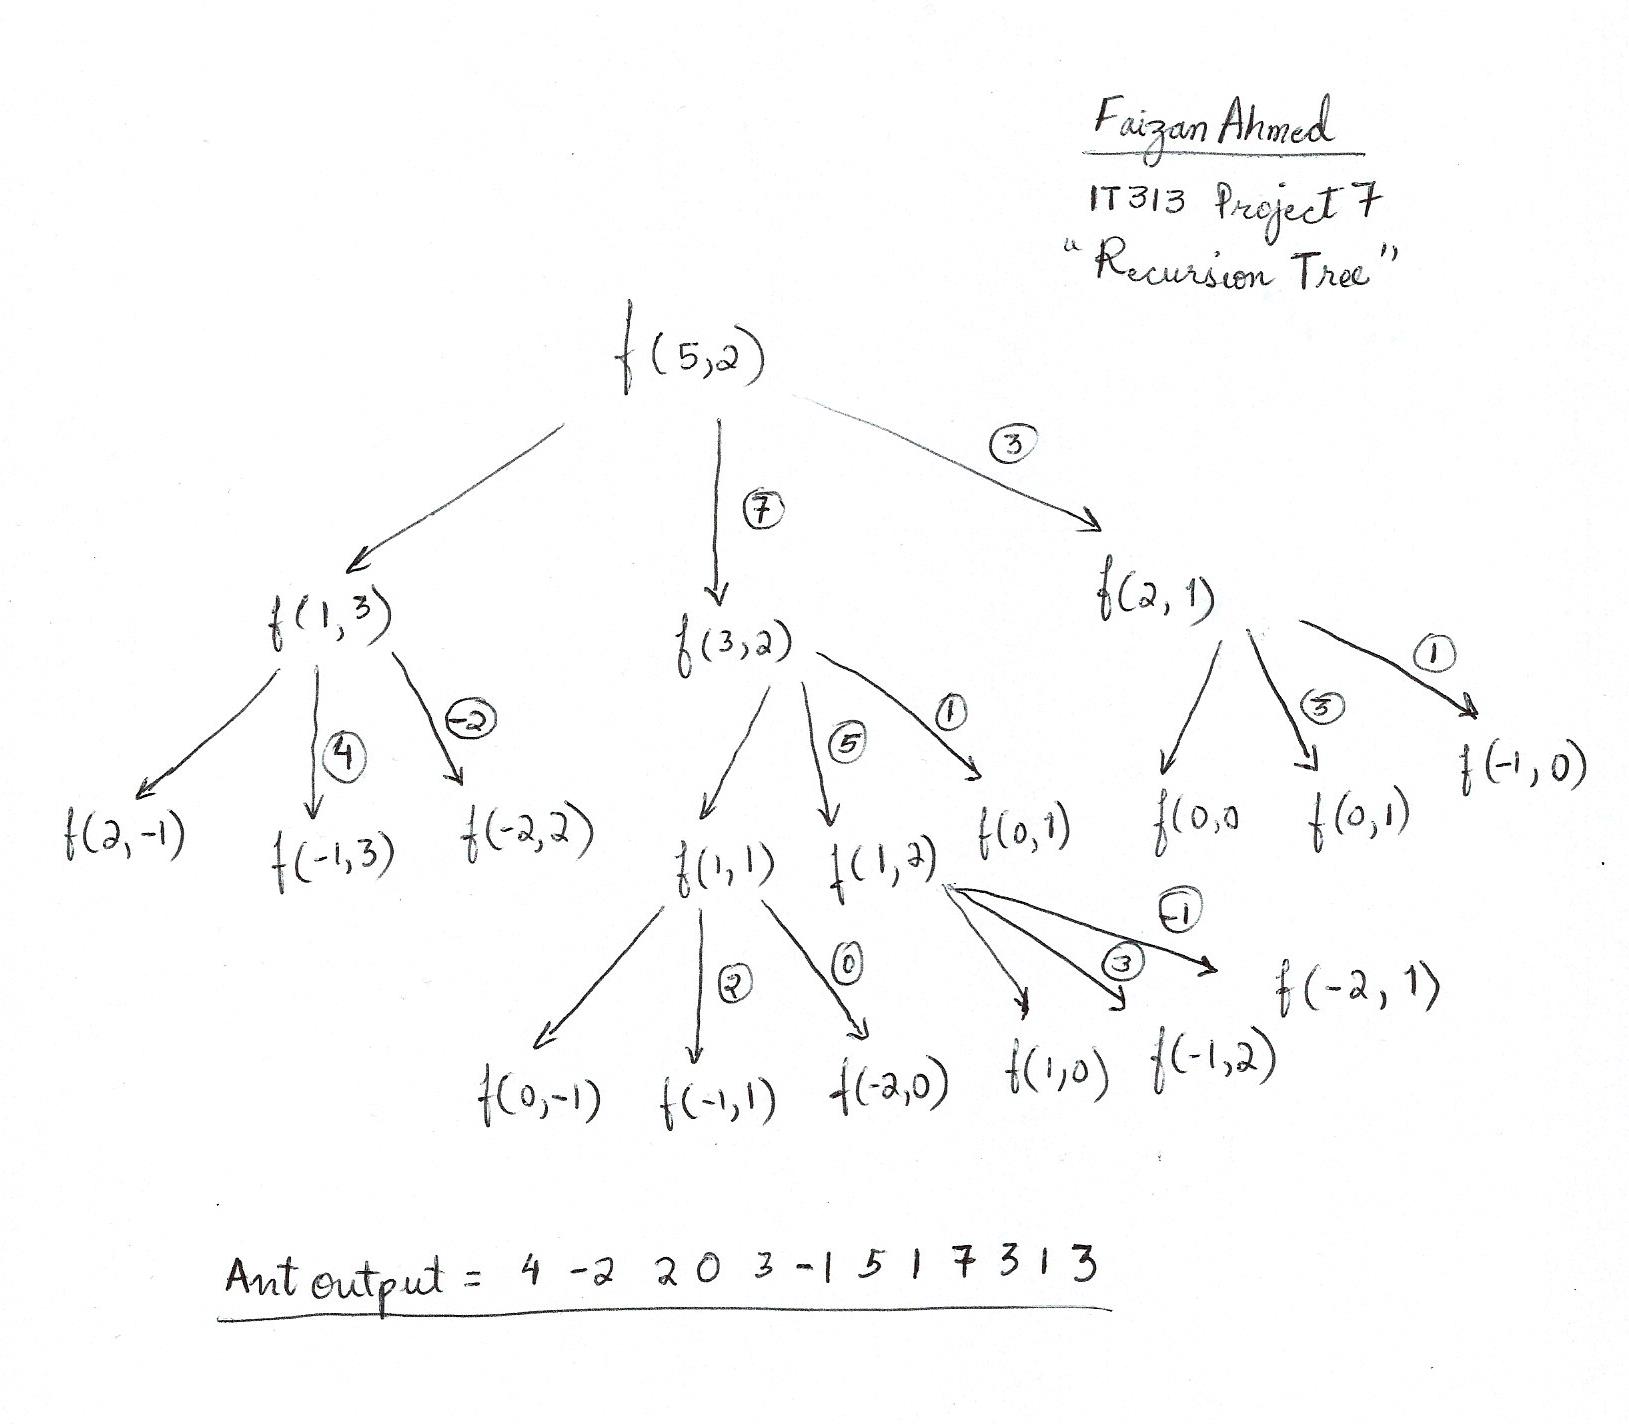 Faizan Ahmed
IT 313 Project 7
"Recursion Tree"
f(5,2)
3
7
f(1,3)
f(3,2)
f(2,1)
-2
4
5
1
3
1
f(2,-1)
f(-1,3)
f(-2,2)
f(1,1)
f(1,2)
f(0,1)
f(0,0
f(0,1)
f(-1,0)
2
0
3
-1
f(0,-1)
f(-1,1)
f(-2,0)
f(1,0)
f(-1,2)
f(-2,1)
Ant output = 4 -2 2 0 3 -1 5 1 7 3 1 3